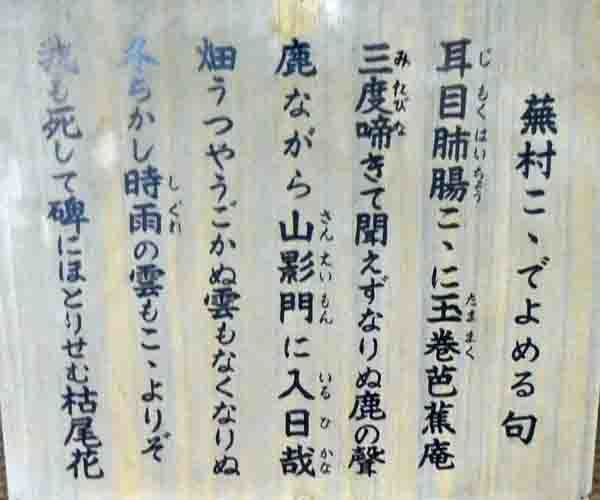 蕪村こゝでよめる句
耳目肺腸こゝに玉巻芭蕉庵
じもくはいちょう
たままく
三度啼きて聞えずなりぬ鹿の聲
みたびな
鹿ながら山影門に入日哉
さんえいもん
いるひかな
畑うつやうごかぬ雲もなくなりぬ
冬ちかし時雨の雲もこゝよりぞ
しぐれ
我も死して碑にほとりせむ枯尾花